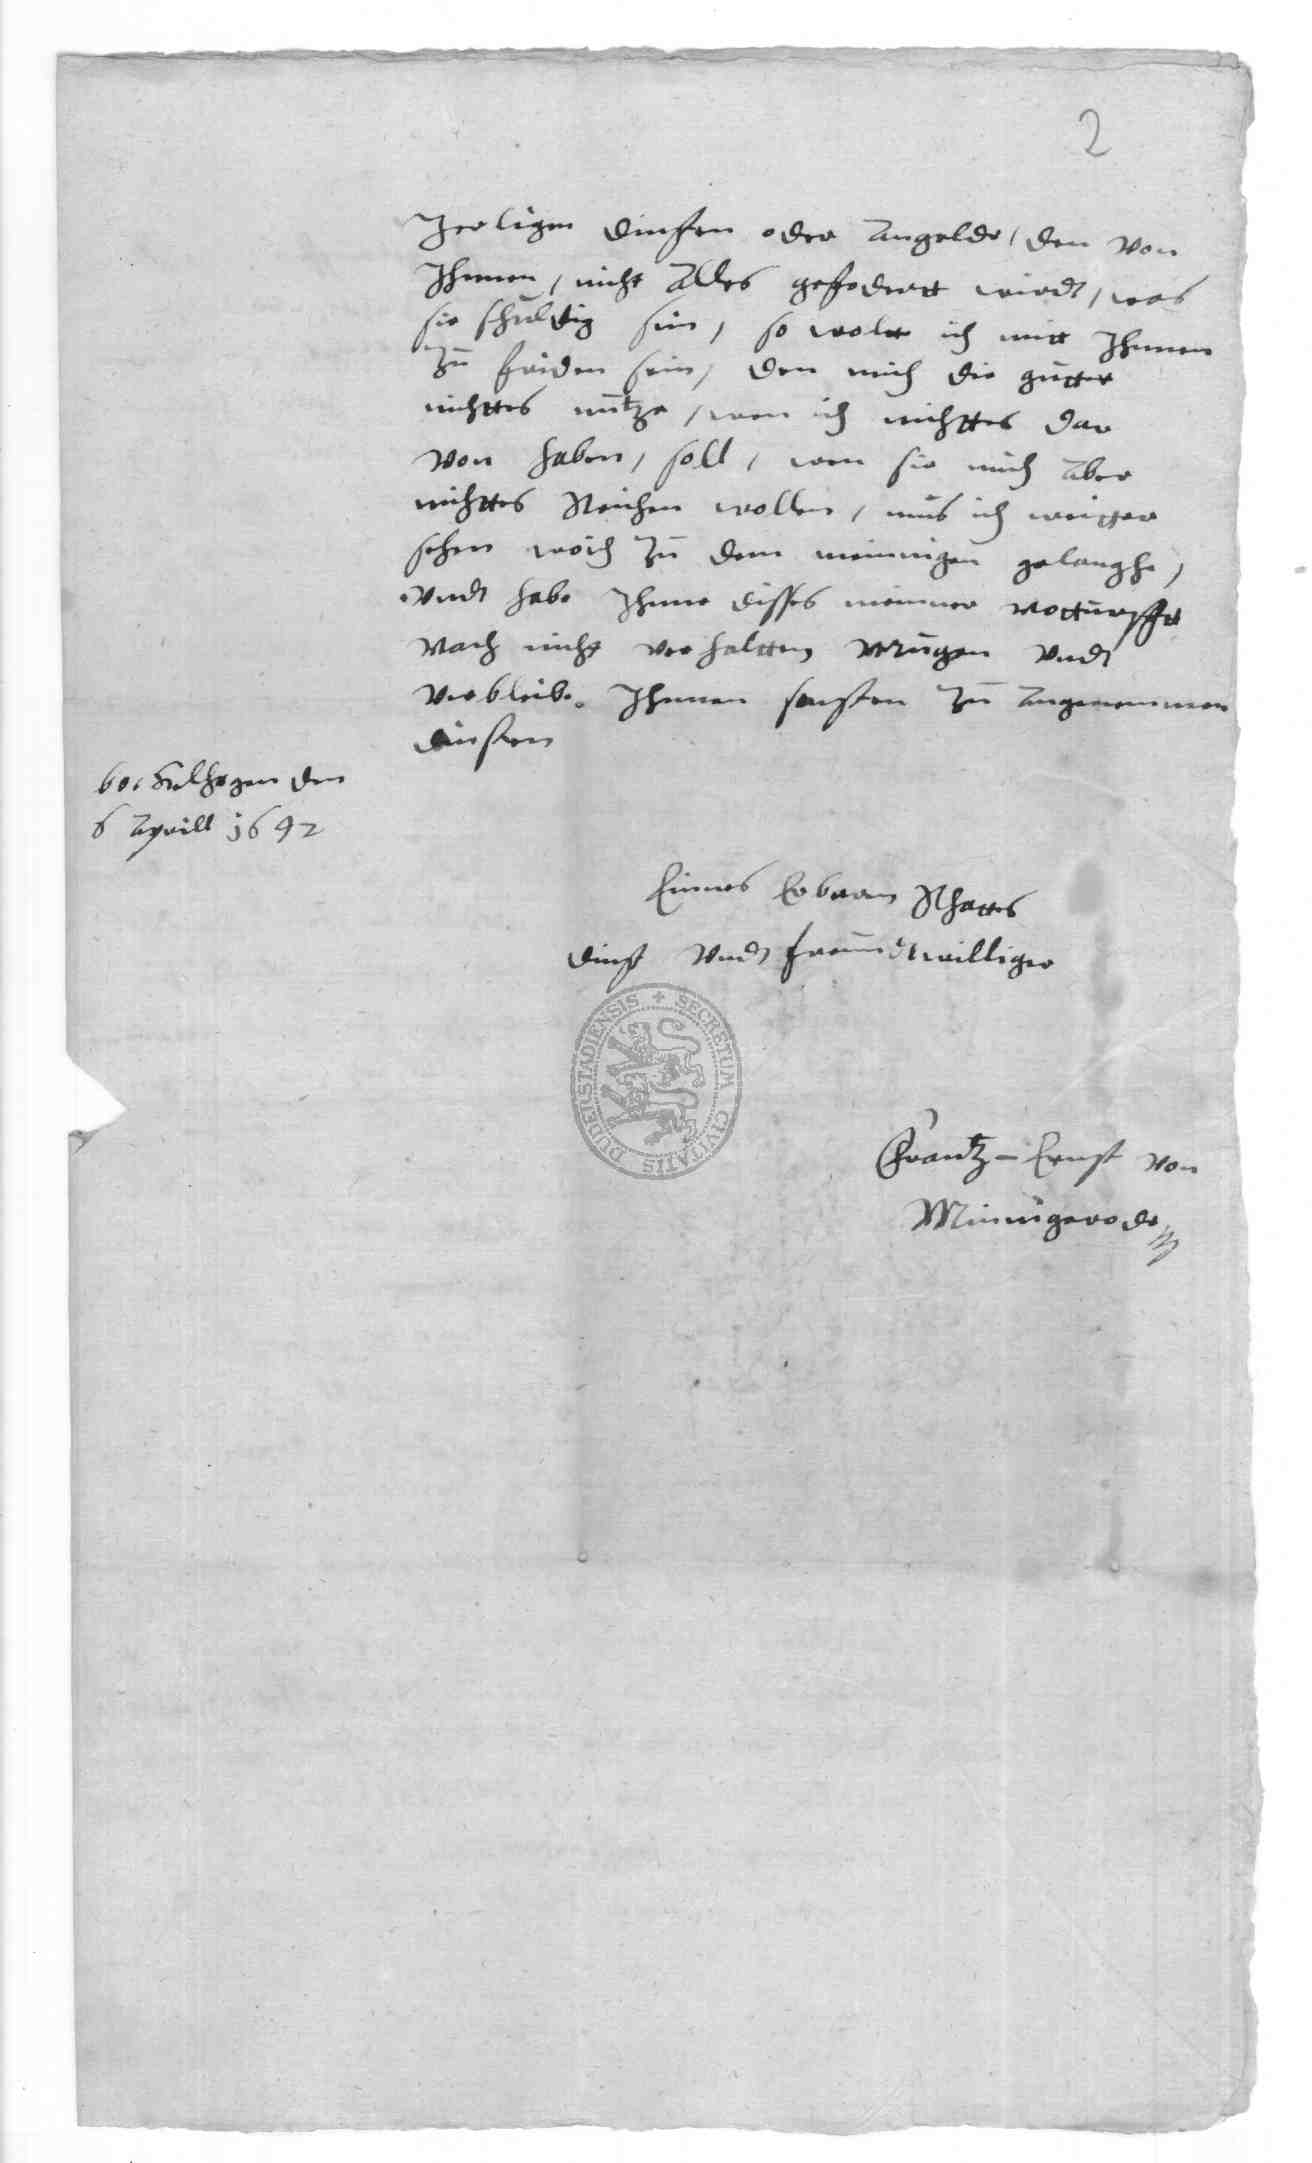 2
Jerligen dinsten oder Angelde, den von
Ihnnen, nicht Alles gefodertt wirdt, was
sie schuldig sin, so woltt ich mitt Ihnnen
zu friden sein, den mich die gütter
nichttes nütze, wen ich nichttes dar
von haben, soll, wen sie mich Aber
nichttes Reichen wollen, mus ich weitter
sehen wo ich zu dem meinnigen gelanghe,
Undt habe Ihnne disses meinner notturfft
nach nicht verhaltten mügen undt
verbleibe Ihnnen sunsten zu Angenemmen
dinsten
den
6 Aprill 1642
Einnes Erbaren Rhattes
dinst undt freundtwilliger
SECRETUM CIVITATIS DUDERSTADIENSIS
Frantz-Ernst von
Minnigerode